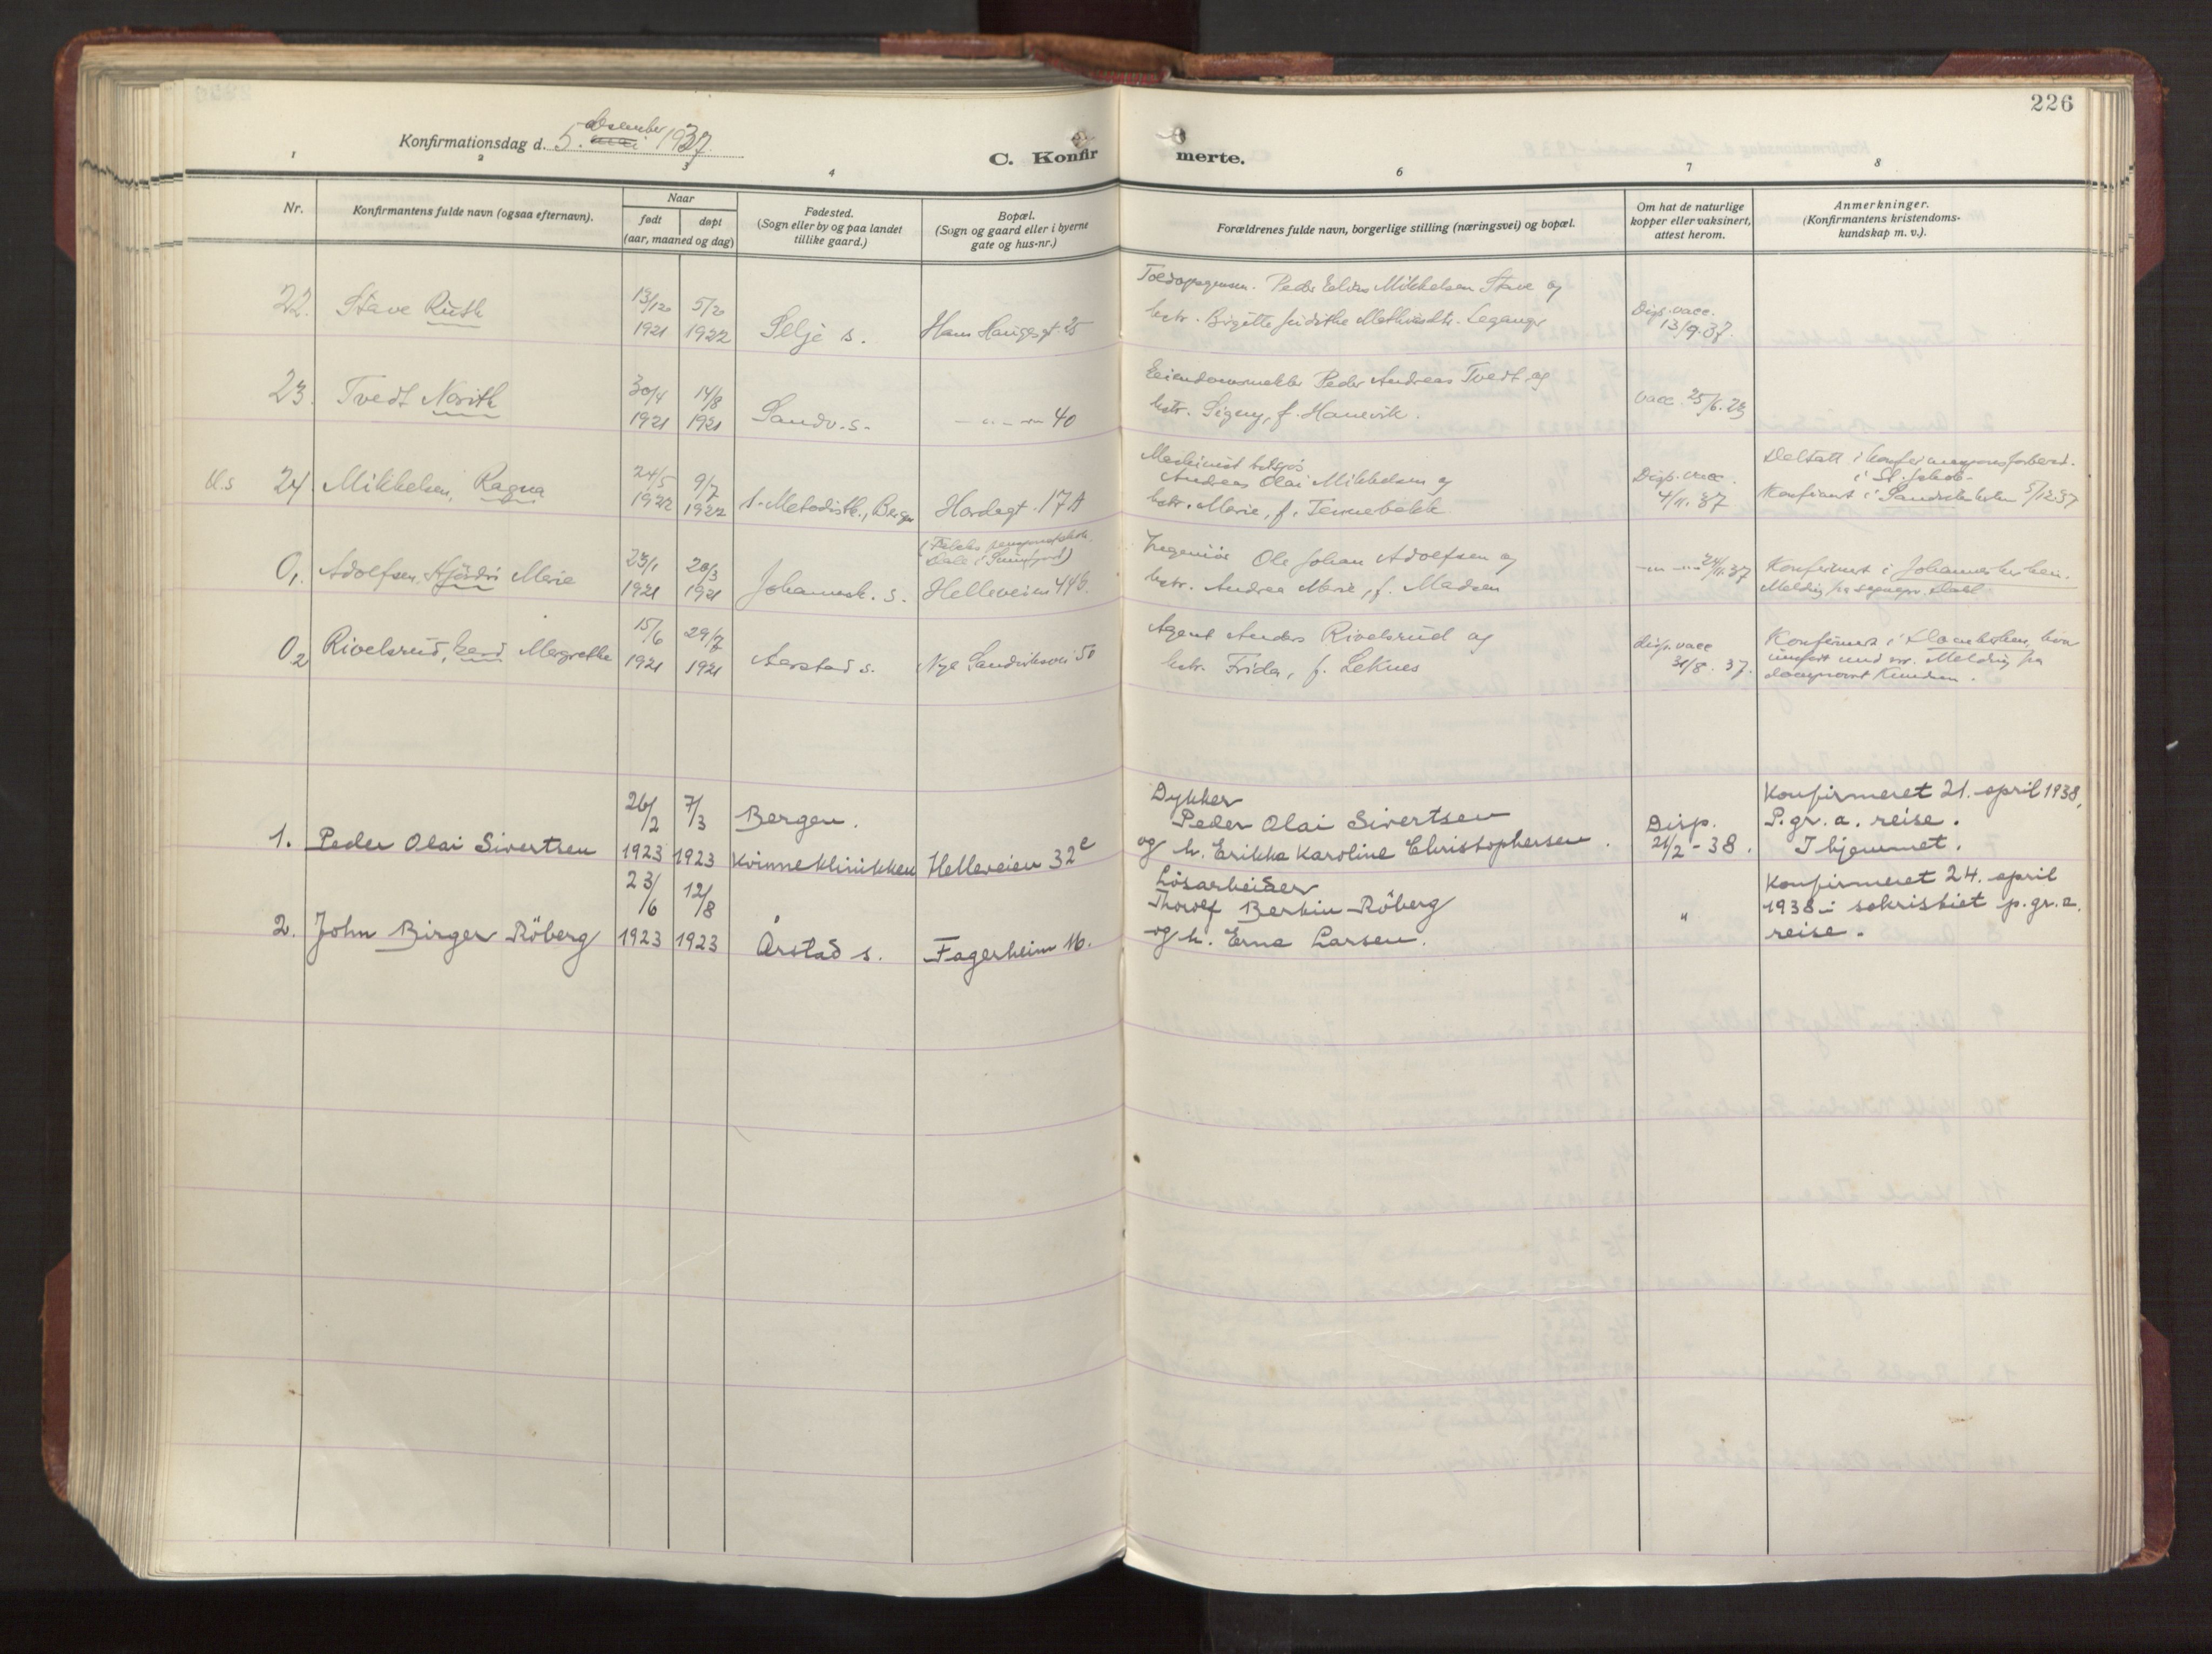 226
Konfirmationsdag d. 5. desember mai 1937.
C. Konfirmerte.
1 2 3 4 6 7 8
Nr.
Konfirmantens fulde navn (ogsaa efternavn).
Naar
født
døpt
(aar, maaned og dag)
Fødested.
(Sogn eller by og paa landet
tillike gaard.)
Bopæl.
(Sogn og gaard eller i byerne
gate og hus-nr.)
Forældrenes fulde navn, borgerlige stilling (næringsvei) og bopæl.
Om hat de naturlige
kopper eller vaksinert,
attest herom.
Anmerkninger.
(Konfirmantens kristendoms-
kundskap m. v.).
22. Stave Ruth
1921 1922
Selje s.
Hans Haugesgt 25
Peder Mikkelsen Stave og
hstr. Birgitte
Disp. vacc.
13/9.37.
23. Tvedt Norith
30/4 1921
14/8 1921
Sandv. s.
40
Eiendomsmekler Peder Andreas Tvedt og
hstr. Signy, f. Hanevik.
vacc. 25/6.23
24. Mikkelsen, Ragna
24/5 1922
9/7 1922
1. Metodistk., Bergen
Hordagt. 17A
Maskinist
Andreas Olai Mikkelsen og
hstr. Marie, f. Tennebekk
Disp. vacc.
4/11.37
Deltatt i
i St. Jakob.
Konfirmert i Sandvikskirken 5/12.37
01. Adolfsen, Hjördis Marie
23/1 1921
20/3 1921
Johannesk. s.
Helleveien 44b.
Ingeniör Ole Johan Adolfsen og
hstr. Andrea Marie, f. Madsen
24/11.37
Konfirmert i Johanneskirken.
Melding fra sognepr. Dahl
02 Rivelsrud, Gerd Margrethe
15/6 1921
29/7 1921
Aarstad s.
Nye Sandviksvei 50
Agent Anders Rivelsrud og
hstr. Frida, f. Leknes
Disp. vacc
31/8. 37.
Konfirmert i Domkirken,
Melding fra
domprost Knudsen.
1. Peder Olai Sivertsen
26/2 1923
7/3 1923
Bergen.
Kvinneklinikken
Helleveien 32c
Dykker
Peder Olai Sivertsen
og h. Erikka Karoline Christophersen.
Disp.
21/2-38.
Konfirmeret 21. april 1938,
P. gr. a. reise.
I hjemmet.
2. John Birger Röberg
23/6 1923
12/8 1923
Årstad s.
Fagerheim 16.
Lösarbeider
Thorolf Bertin Röberg
og h. Erna Larsen.
"
Konfirmeret 24. april
1938 i sakristiet p. gr. a.
reise.